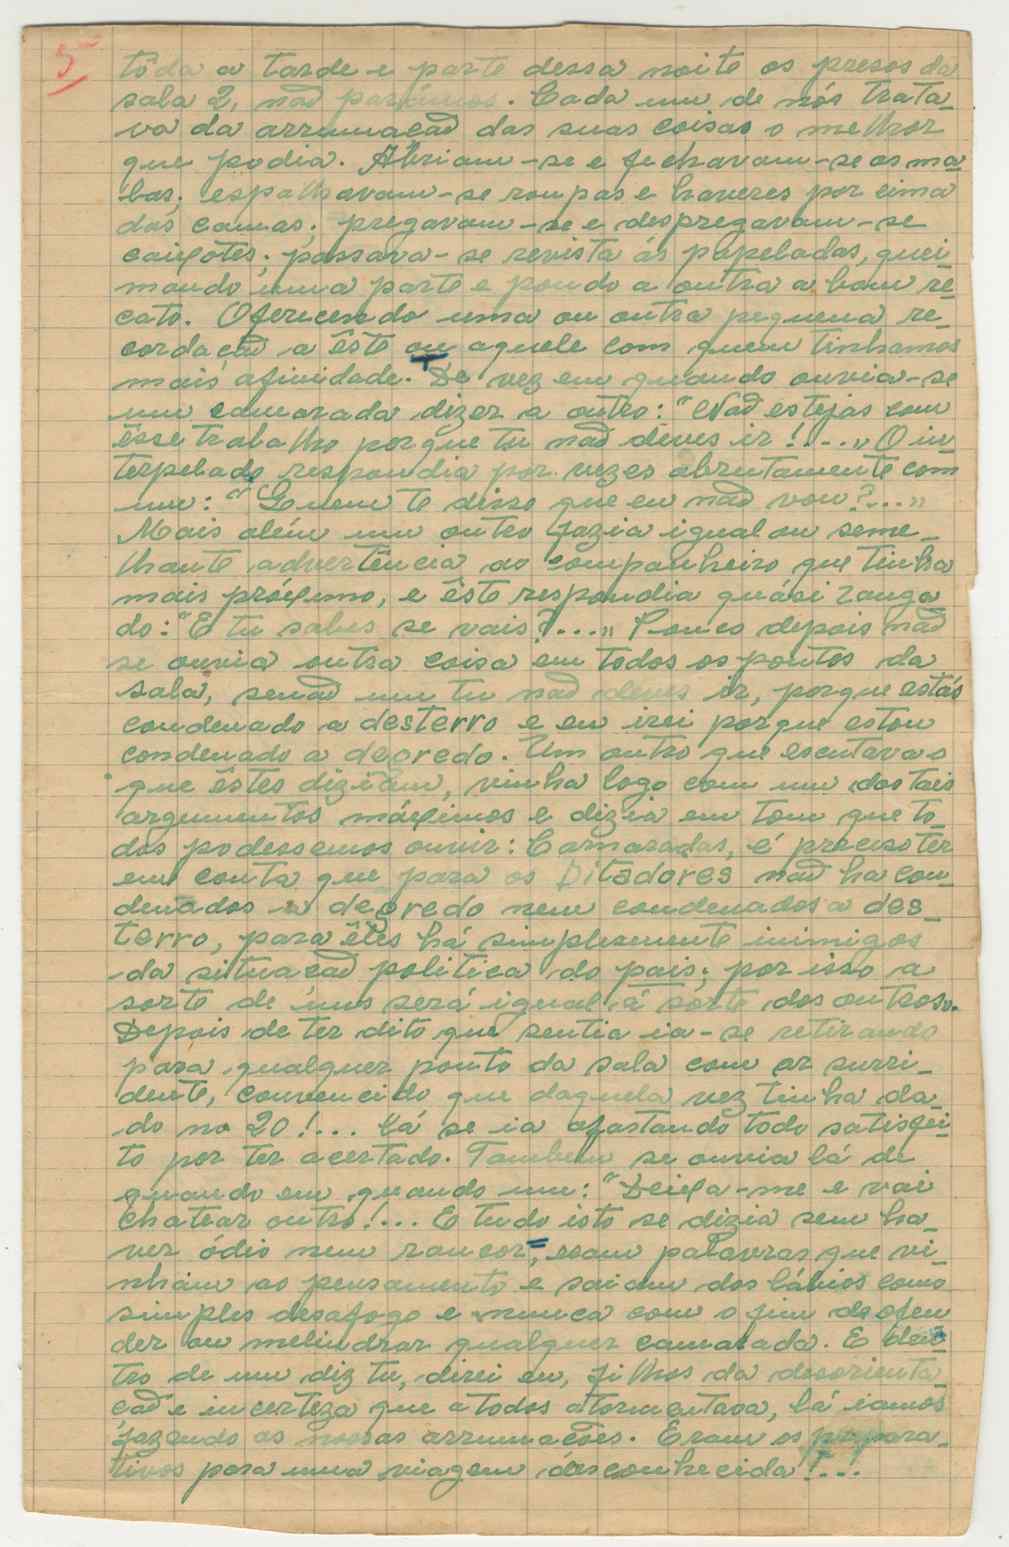 5
tôda a tarde e parte dessa noite os presos da
sala 2, não parámos. Cada um de nós trata-
va da arrumação das suas coisas o melhor
que podia. Abriam-se e fechavam-se as ma
las; espalhavam-se roupas e haveres por cima
das camas; pregavam-se e despregavam-se
caixotes; passava-se revista ás papeladas, quei
mando uma parte e pondo a outra a bom re-
cato. Oferecendo uma ou outra pequena re-
cordação a êste ou aquele com quem tinhamos
mais afinidade. De vez em quando ouvia-se
um camarada dizer a outro: "Não estejas com
êsse trabalho porque tu não deves ir!...." O in
terpelado respondia por vezes abrutamente com
um: "Quem te disse que eu não vou?..."
Mais além um outro fazia igual ou seme-
lhante advertência ao companheiro que tinha
mais próximo, e êste respondia quási zanga
do: "E tu sabes se vais?...." Pouco depois não
se ouvia outra coisa em todos os pontos da
sala, senão um tu não deves ir, porque estás
condenado a desterro e eu irei porque estou
condenado a degredo. Um outro que escutava o
que êstes diziam, vinha logo com um dos tais
argumentos máximos e dizia em tom que to-
dos podessemos ouvir: Camaradas, é preciso ter
em conta que para os Ditadores não ha con-
denados a degredo nem condenados a des-
terro, para êles há simplesmente inimigos
da situação politica do pais; por isso a
sorte de uns será igual á sorte dos outros".
Depois de ter dito que sentia ia-se retirando
para qualquer ponto da sala com ar surri-
dente, convencido que daquela vez tinha da-
do no 20!... Lá se ia afastando todo satisfei-
to por ter acertado. Tambem se ouvia lá de
quando em quando um: "Deixa-me e vai
chatear outro!... E tudo isto se dizia sem ha-
ver ódio nem rancor, eram palavras que vi-
nham ao pensamento e saiam dos lábios como
simples desafogo e nunca com o fim de ofen
der ou melindrar qualquer camarada. E den-
tro de um diz tu, direi eu, filhos da desorienta
ção e incerteza que a todos atormentava, lá iamos
fazendo as nossas arrumações. Eram os prepara-
tivos para uma viagem desconhecida!...